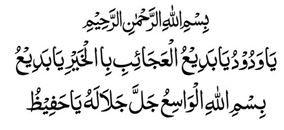 بِسْمِ اللهِ الرَّحْمٰنِ الرَّحِيْمِ
يَا وَدُوْدُ يَا بَدِيْعُ الْعَجَائِبِ بِا الْخَيْرِ يَا بَدِيْعُ
بِسْمِ اللهِ الْوَاسِعُ جَلَّ جَلَالَهُ يَا حَفِيْظُ